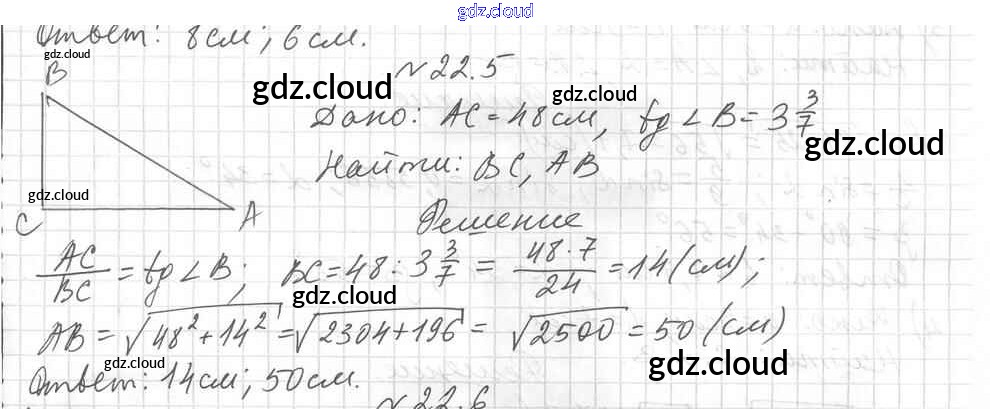 gdz.cloud
Ответ: 8см; 6см.
gdz.cloud
В
№22.5
gdz.cloud gdz.cloud
Дано: АС=48см, tg∠B=3 3/7
gdz.cloud
Найти: ВС, АВ
gdz.cloud
С А
Решение
AC/BC = tg∠B; BC=48:3 3/7 = 48·7/24 = 14(см);
gdz.cloud gdz.cloud
AB = √48²+14² = √2304+196 = √2500 = 50(см)
gdz.cloud gdz.cloud
Ответ: 14см; 50см.
№22.6